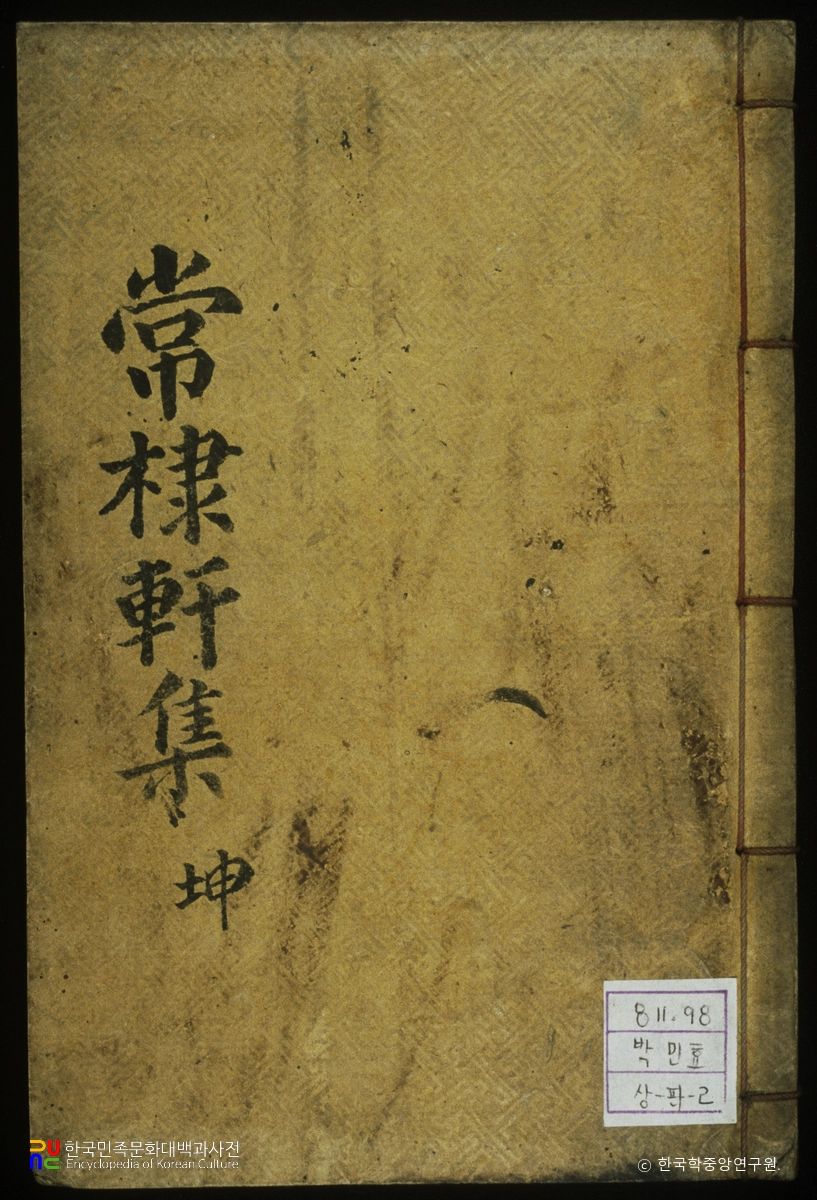 常棣軒集 坤
811.98
박민효
상-판-2
한국민족문화대백과사전
Encyclopedia of Korean Culture
© 한국학중앙연구원